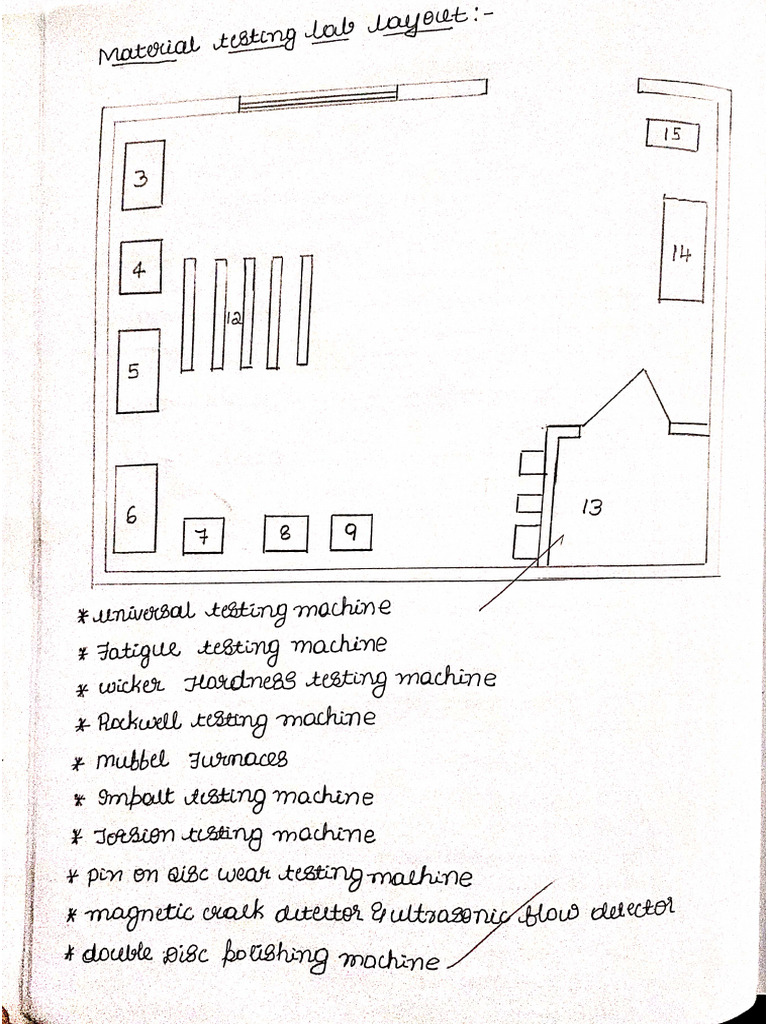 Material testing lab layout:-
15
3
14
4
12
5
13
6
7
8
9
* universal testing machine
* Fatigue testing machine
* wicker Hardness testing machine
* Rockwell testing machine
* mubbel Furnaces
* Impalt testing machine
* Torsion testing machine
* pin on disc wear testing machine
* magnetic cralk detector & ultrasonic flow detector
* double disc polishing machine